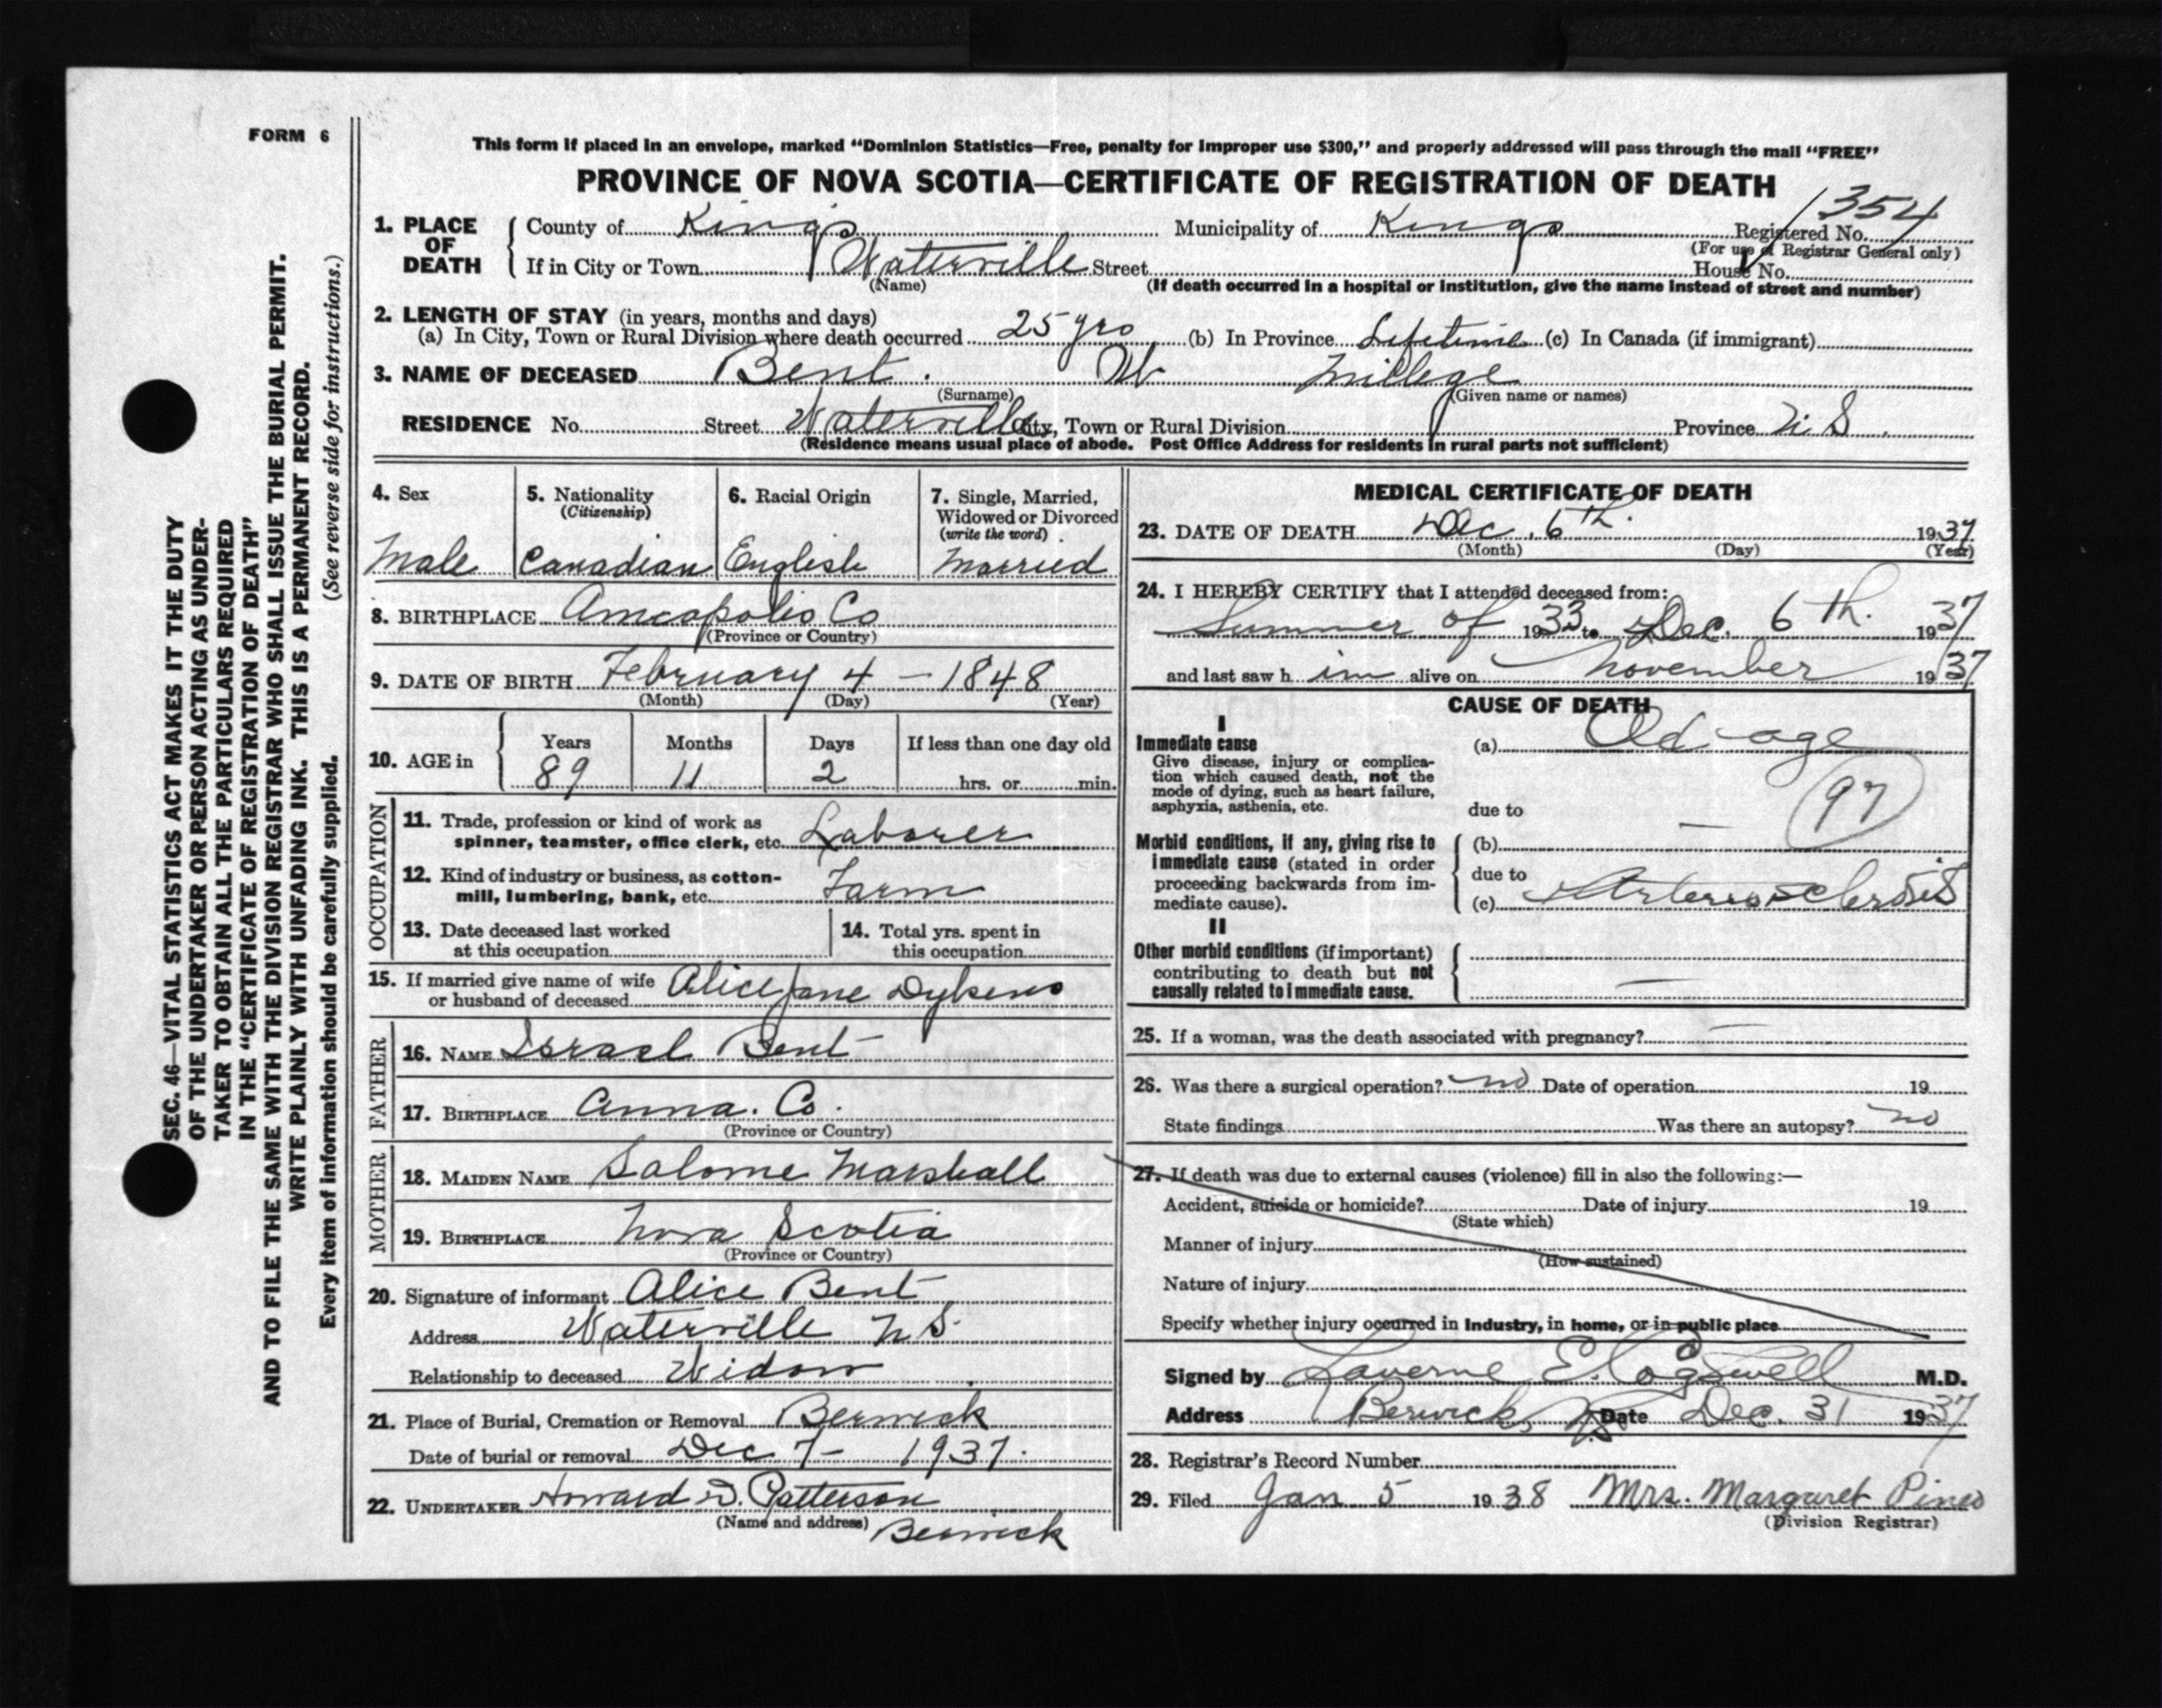 FORM 6
SEC. 46—VITAL STATISTICS ACT MAKES IT THE DUTY
OF THE UNDERTAKER OR PERSON ACTING AS UNDER-
TAKER TO OBTAIN ALL THE PARTICULARS REQUIRED
IN THE "CERTIFICATE OF REGISTRATION OF DEATH"
AND TO FILE THE SAME WITH THE DIVISION REGISTRAR WHO SHALL ISSUE THE BURIAL PERMIT.
WRITE PLAINLY WITH UNFADING INK. THIS IS A PERMANENT RECORD.
Every item of information should be carefully supplied. (See reverse side for instructions.)
This form if placed in an envelope, marked "Dominion Statistics—Free, penalty for improper use $300," and properly addressed will pass through the mail "FREE"
PROVINCE OF NOVA SCOTIA—CERTIFICATE OF REGISTRATION OF DEATH
1. PLACE OF DEATH County of Kings Municipality of Kings Registered No. 1354
(For use of Registrar General only)
If in City or Town Waterville Street House No.
(Name) (If death occurred in a hospital or institution, give the name instead of street and number)
2. LENGTH OF STAY (in years, months and days)
(a) In City, Town or Rural Division where death occurred 25 yrs (b) In Province Lifetime (c) In Canada (if immigrant)
3. NAME OF DECEASED Bent. W. Millege
(Surname) (Given name or names)
RESIDENCE No. Street Waterville City, Town or Rural Division Province N. S.
(Residence means usual place of abode. Post Office Address for residents in rural parts not sufficient)
4. Sex Male
5. Nationality (Citizenship) Canadian
6. Racial Origin English
7. Single, Married, Widowed or Divorced (write the word) Married
8. BIRTHPLACE Annapolis Co
(Province or Country)
9. DATE OF BIRTH February 4 - 1848
(Month) (Day) (Year)
10. AGE in Years 89 Months 11 Days 2 If less than one day old hrs. or min.
OCCUPATION
11. Trade, profession or kind of work as
spinner, teamster, office clerk, etc. Laborer
12. Kind of industry or business, as cotton-
mill, lumbering, bank, etc. Farm
13. Date deceased last worked
at this occupation
14. Total yrs. spent in
this occupation
15. If married give name of wife
or husband of deceased Alice Jane Dykens
FATHER
16. NAME Israel Bent
17. BIRTHPLACE Anna. Co.
(Province or Country)
MOTHER
18. MAIDEN NAME Salome Marshall
19. BIRTHPLACE Nova Scotia
(Province or Country)
20. Signature of informant Alice Bent
Address Waterville N S.
Relationship to deceased Widow
21. Place of Burial, Cremation or Removal Berwick
Date of burial or removal Dec 7 - 1937.
22. UNDERTAKER Howard D. Patterson
(Name and address) Berwick
MEDICAL CERTIFICATE OF DEATH
23. DATE OF DEATH Dec. 6th. 1937
(Month) (Day) (Year)
24. I HEREBY CERTIFY that I attended deceased from:
Summer of 1933 to Dec. 6th. 1937
and last saw him alive on November 1937
CAUSE OF DEATH
I
Immediate cause
Give disease, injury or complica-
tion which caused death, not the
mode of dying, such as heart failure,
asphyxia, asthenia, etc.
(a) Old age
due to
97
Morbid conditions, if any, giving rise to
immediate cause (stated in order
proceeding backwards from im-
mediate cause).
(b) —
due to
(c) Arteriosclerosis
II
Other morbid conditions (if important)
contributing to death but not
causally related to immediate cause.
—
25. If a woman, was the death associated with pregnancy? —
26. Was there a surgical operation? no Date of operation 19
State findings Was there an autopsy? no
27. If death was due to external causes (violence) fill in also the following:—
Accident, suicide or homicide? Date of injury 19
(State which)
Manner of injury
(How sustained)
Nature of injury
Specify whether injury occurred in Industry, in home, or in public place
Signed by Laverne E. Cogswell M.D.
Address Berwick, NS Date Dec. 31 1937
28. Registrar's Record Number
29. Filed Jan 5 1938 Mrs. Margaret Pineo
(Division Registrar)